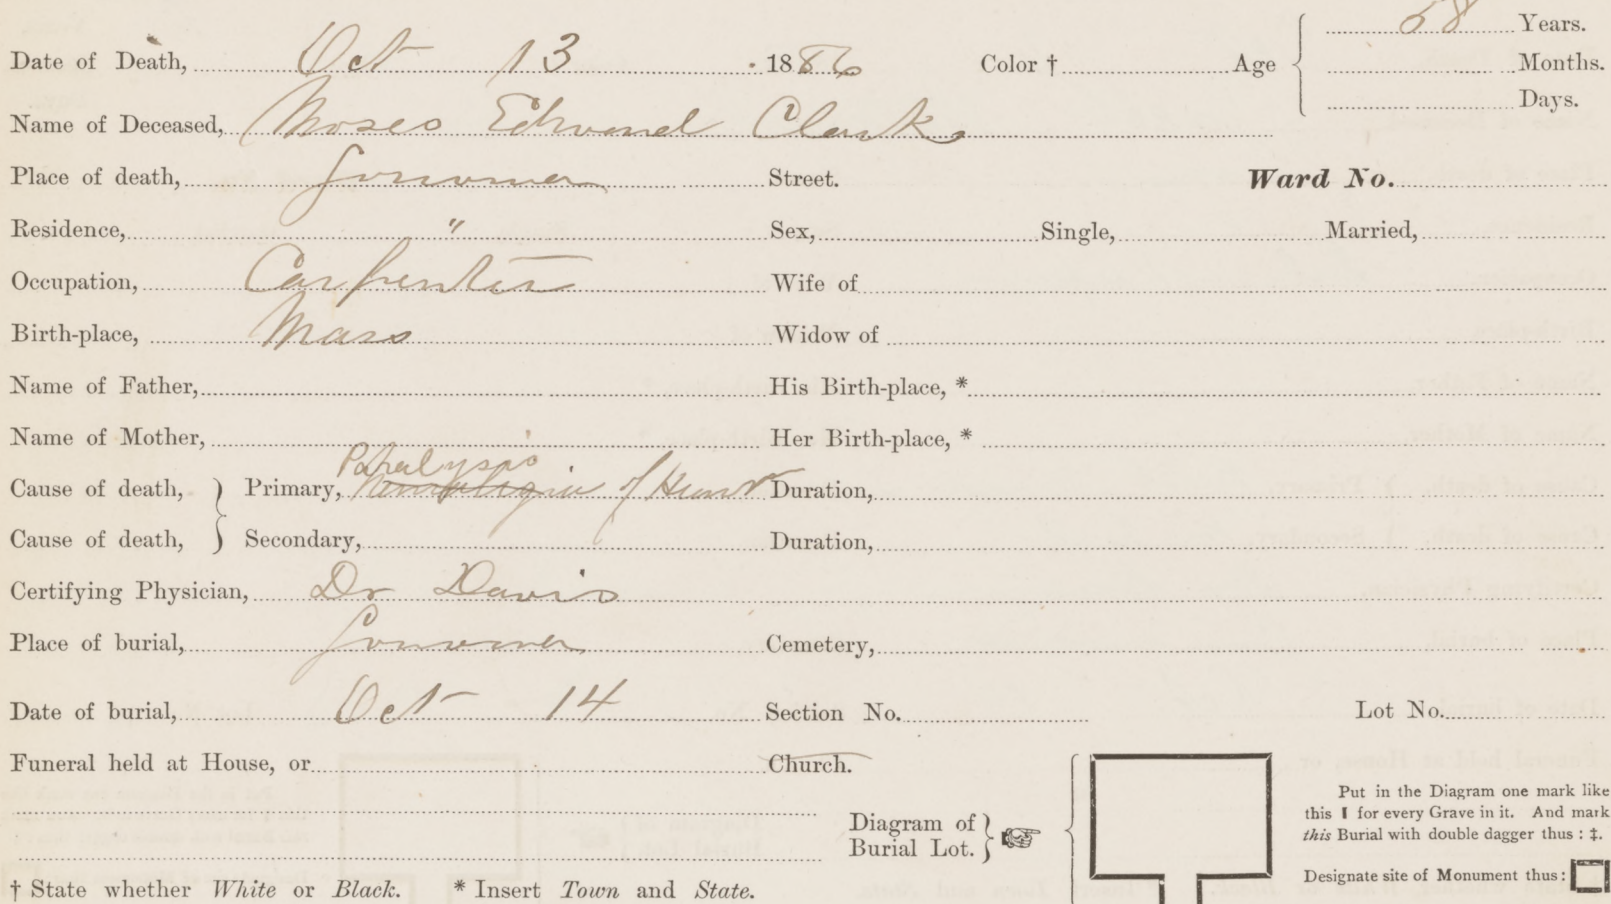 58 Years.
Date of Death, Oct 13 1886 Color † Age Months.
Days.
Name of Deceased, Moses Edmond Clark
Place of death, Sonoma Street. Ward No.
Residence, " Sex, Single, Married,
Occupation, Carpenter Wife of
Birth-place, Mass Widow of
Name of Father, His Birth-place, *
Name of Mother, Her Birth-place, *
Paralysis
Cause of death, } Primary, of Heart Duration,
Cause of death, } Secondary, Duration,
Certifying Physician, Dr Davis
Place of burial, Sonoma Cemetery,
Date of burial, Oct 14 Section No. Lot No.
Funeral held at House, or Church.
Put in the Diagram one mark like
this ▮ for every Grave in it. And mark
this Burial with double dagger thus : ‡.
Diagram of
Burial Lot. }
Designate site of Monument thus :
† State whether White or Black. * Insert Town and State.